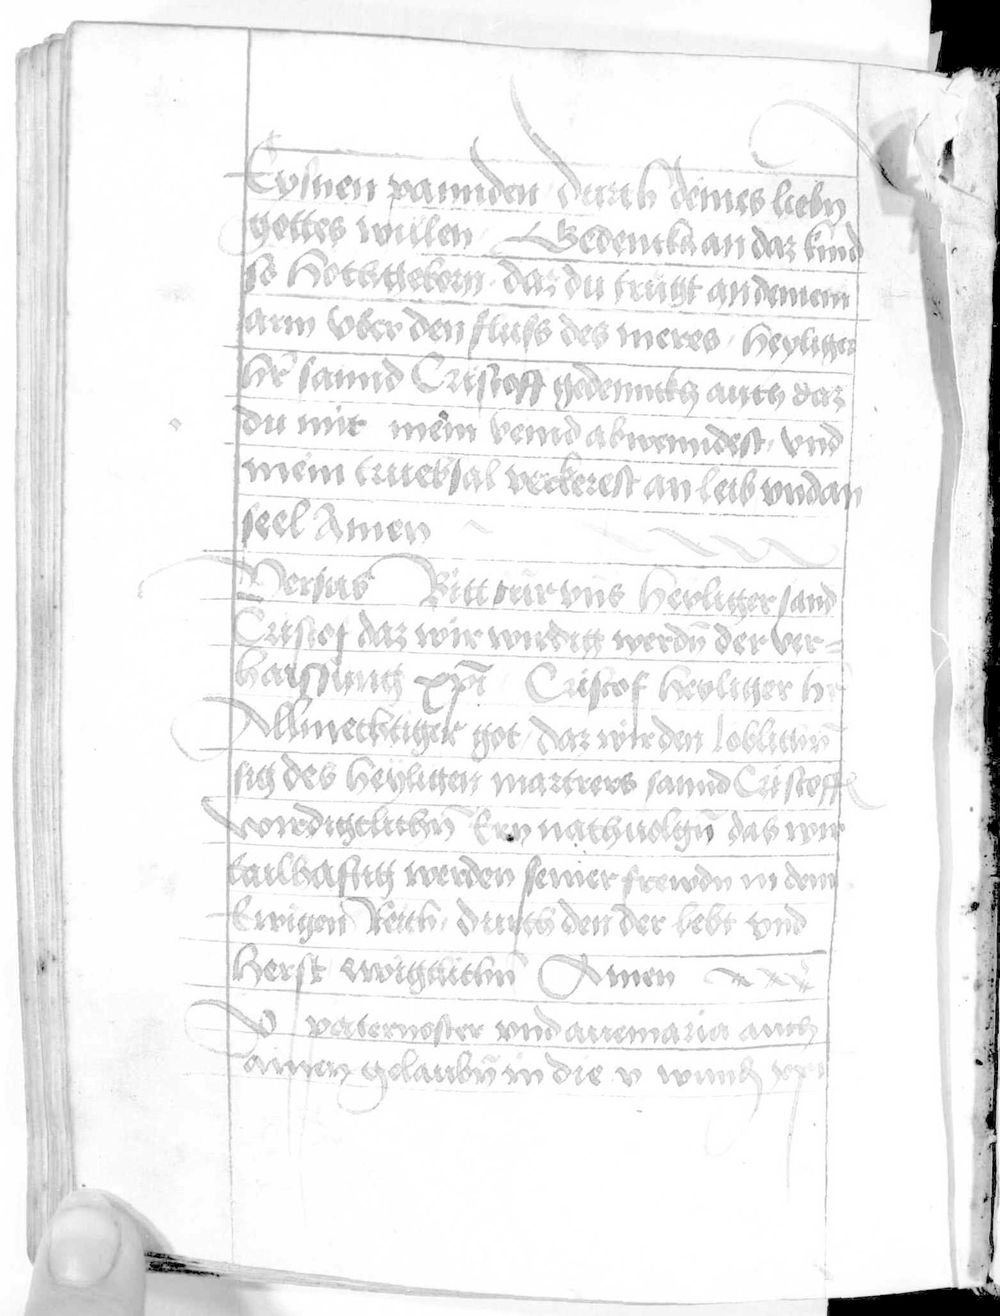 Eysnen pannden durch deines liebn
gottes willen Gedenckh an daz kind
so Hochgeborn daz du trugt an deinem
arm vber den fluss des meres heyliger
hr sannd Cristoff gedennckh auch daz
du mir mein veind abwenndest vnd
mein truebsal verkerest an leib vnd an
seel Amen
Versus Bitt fur vns heyliger sand
Cristof daz wir wirdig werdn der ver=
haissung xpi Cristof heyliger hr
Allmechtiger got daz wir den loblichn
sig des heyligen martrers sannd Cristoff
wirdigclichn Ern nachuolgn das wir
tailhafftig werden seiner frewdn in dem
Ewigen Reich durch den der lebt vnd
herst ewigclichn Amen
v paternoster vnd auemaria auch
ainen gelaubn in die v wunden xpi